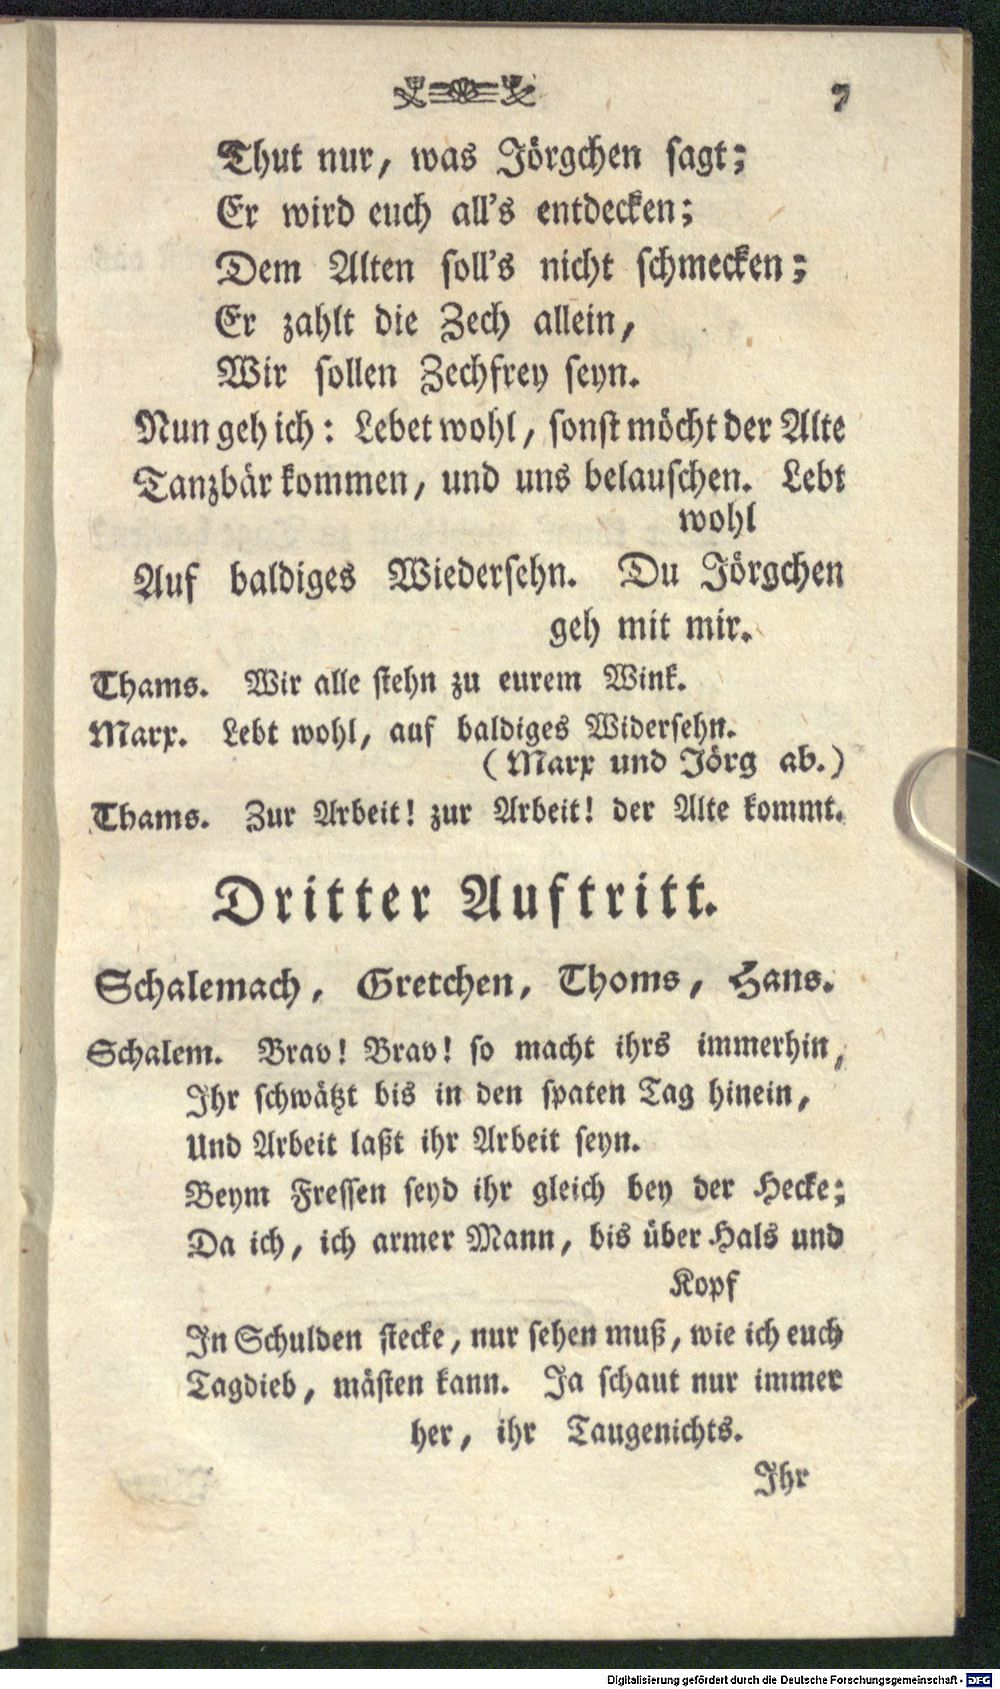 7
Thut nur, was Jörgchen sagt;
Er wird euch all's entdecken;
Dem Alten soll's nicht schmecken;
Er zahlt die Zech allein,
Wir sollen Zechfrey seyn.
Nun geh ich: Lebet wohl, sonst möcht der Alte
Tanzbär kommen, und uns belauschen. Lebt
wohl
Auf baldiges Wiedersehn. Du Jörgchen
geh mit mir.
Thams. Wir alle stehn zu eurem Wink.
Marx. Lebt wohl, auf baldiges Widersehn.
(Marx und Jörg ab.)
Thams. Zur Arbeit! zur Arbeit! der Alte kommt.
Dritter Auftritt.
Schalemach, Gretchen, Thoms, Hans.
Schalem. Brav! Brav! so macht ihrs immerhin,
Ihr schwätzt bis in den spaten Tag hinein,
Und Arbeit laßt ihr Arbeit seyn.
Beym Fressen seyd ihr gleich bey der Hecke;
Da ich, ich armer Mann, bis über Hals und
Kopf
In Schulden stecke, nur sehen muß, wie ich euch
Tagdieb, mästen kann. Ja schaut nur immer
her, ihr Taugenichts.
Ihr
Digitalisierung gefördert durch die Deutsche Forschungsgemeinschaft - DFG